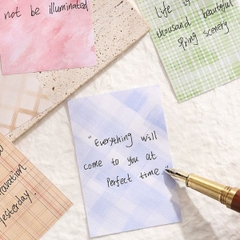 not be illuminated
life is beautiful
thousand
scenery
"Everything will
come to you at
Perfect time"
yesterday.